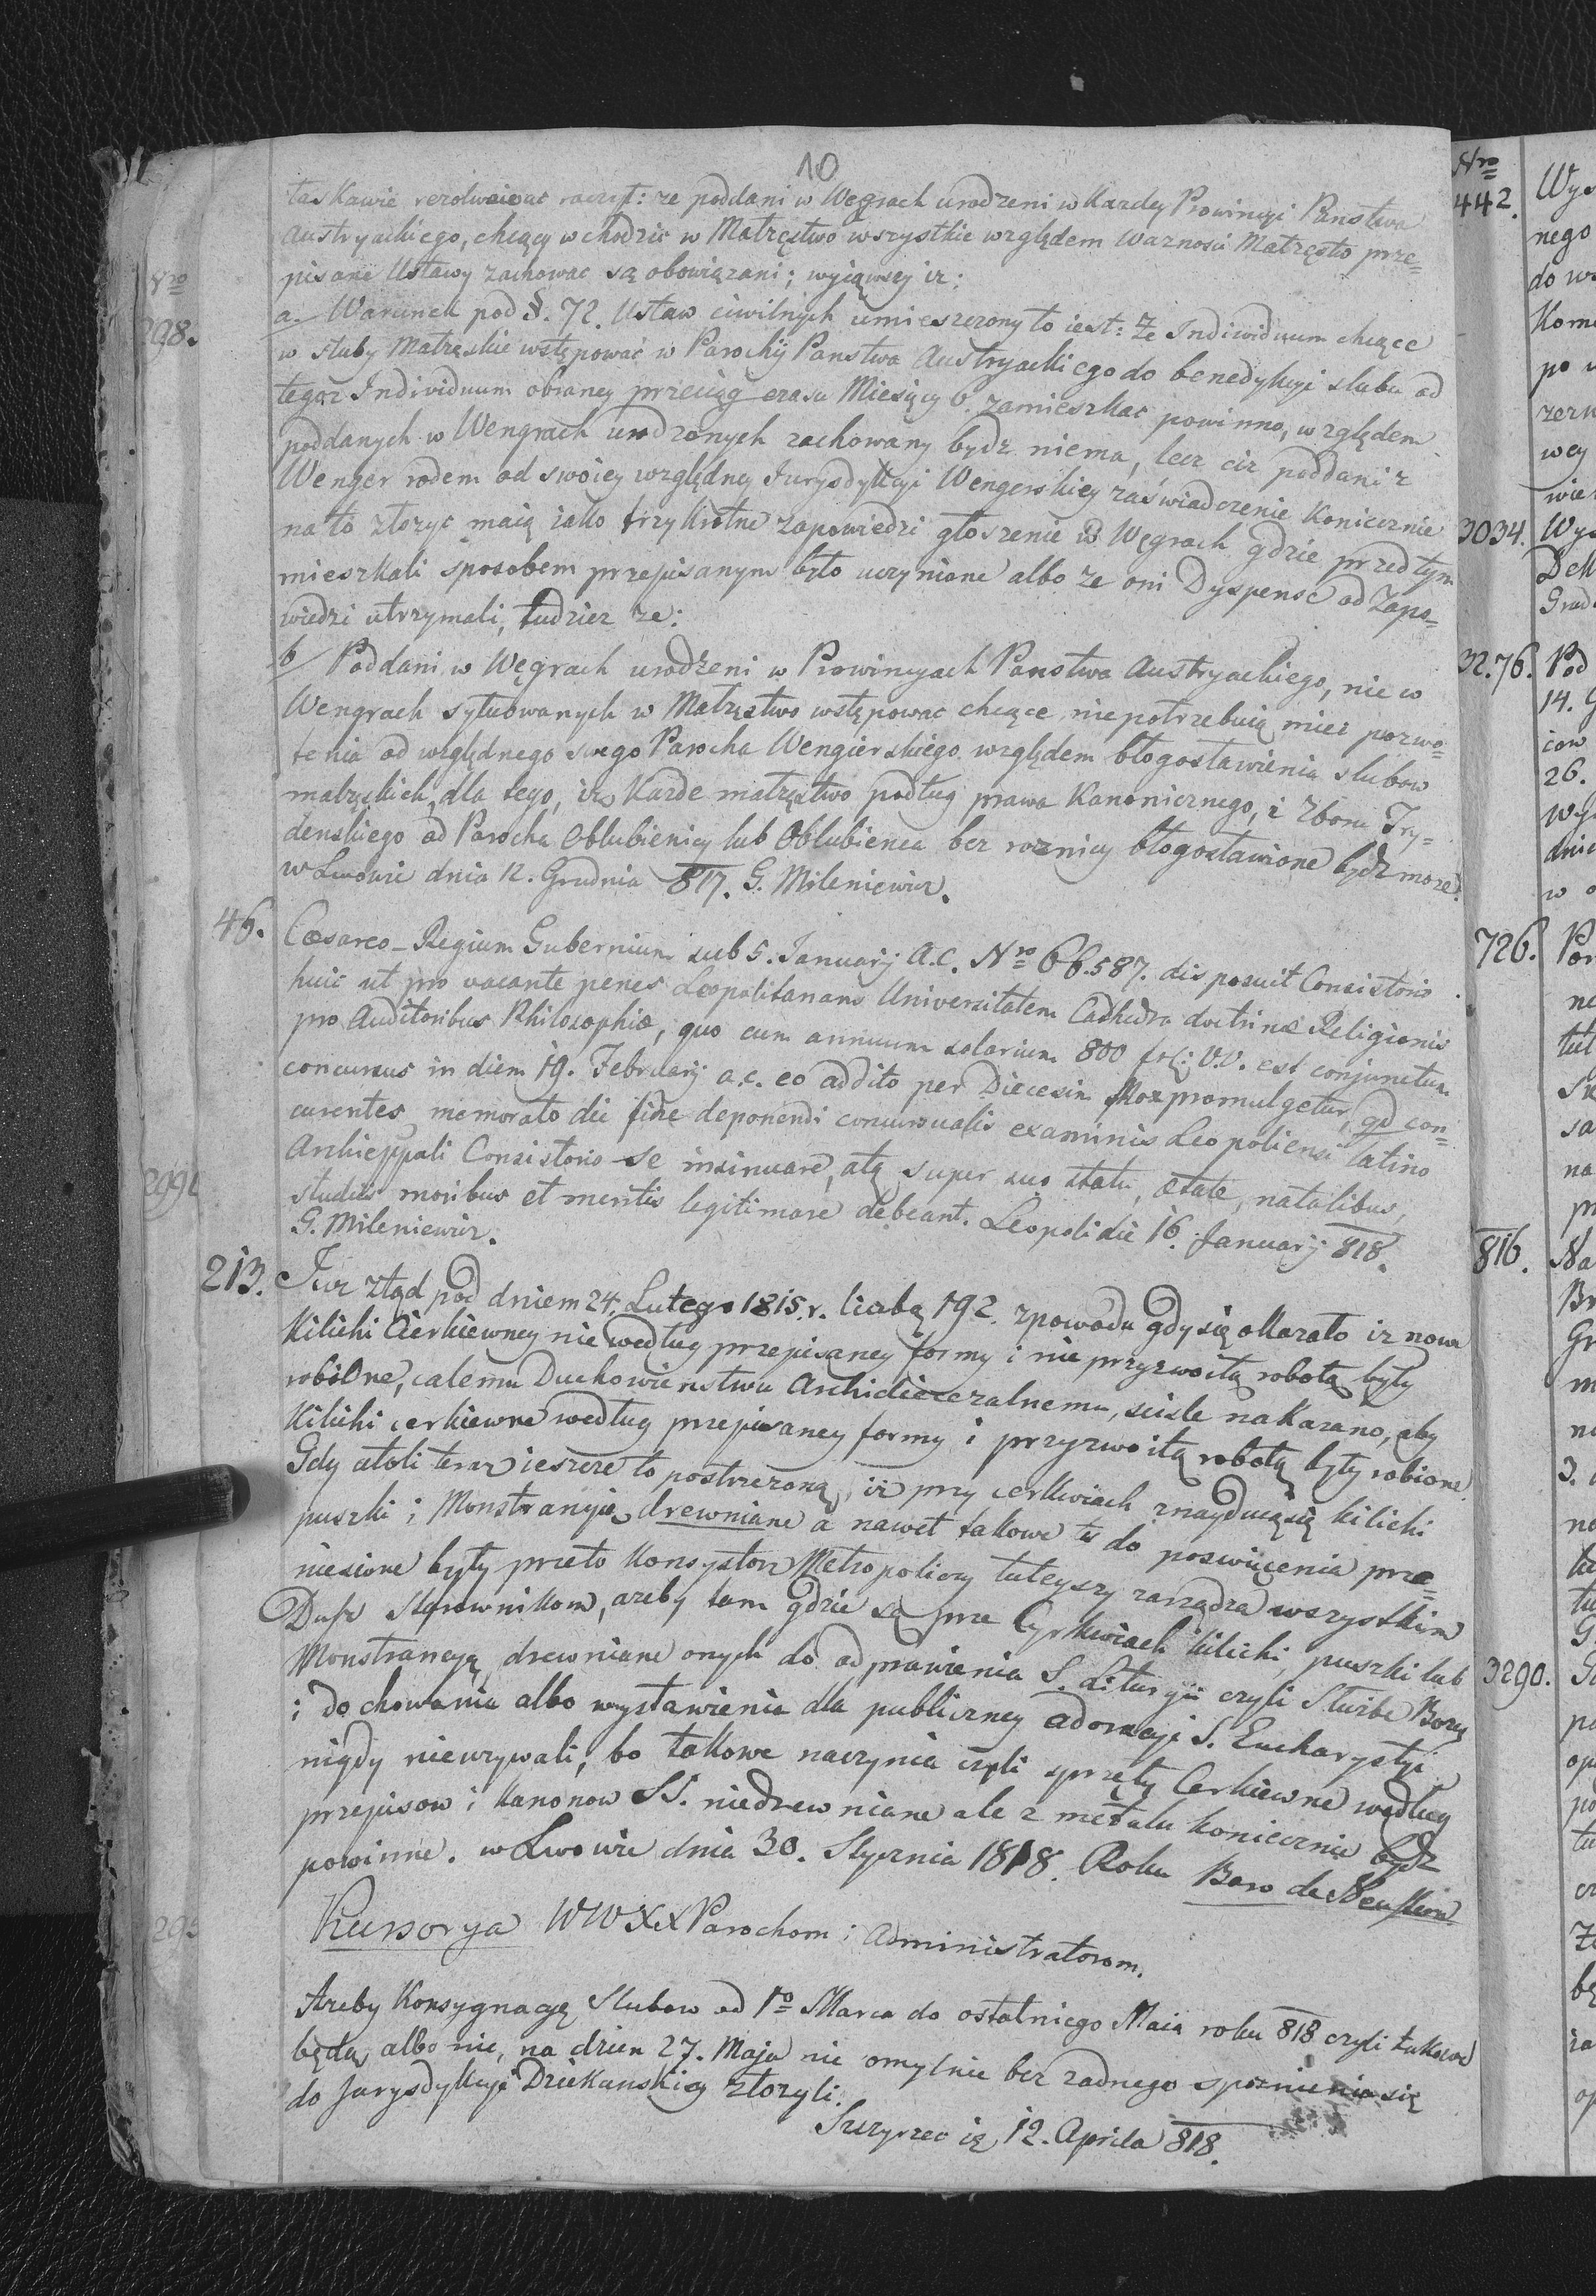 10
łaskawie rezolwować raczył: ze poddani w Węgrach urodzeni w Kazdey Prowincyi Panstwa
Austryackiego, chcący wchodzić w Matręstwo wszystkie względem Waznosci Matręstw prze=
pisane Ustawy zachować są obowiązani; wyiąwszy iz:
a. Warunek pod §. 72. Ustaw ciwilnych umieszczony to iest: Ze Individuum chcące
w sluby Matręskie wstępować w Parochij Panstwa Austryackiego do benedykcyi slubu od
tegoz Individuum obraney przeciąg czasu Miesięcy 6. zamieszkać powinno, względem
poddanych w Wengrach urodzonych zachowany bydz niema, lecz ciz poddani z
Wenger rodem od swoiey względney Jurysdykcyi Wengerskiey zaświadczenie koniecznie
na to złozyć maią iako trzykrotne zapowiedzi głoszenie w Węgrach gdzie przedtym
mieszkali sposobem przepisanym było uczynione albo ze oni Dyspensę od Zapo=
wiedzi otrzymali, tudziez ze:
b/ Poddani w Węgrach urodzeni w Prowincyach Panstwa Austryackiego, nie w
Wengrach sytuowanych w Matręstwo wstępować chcące niepotrzebuią mieć pozwo=
lenia od względnego swego Parocha Wengierskiego względem błogosławienia slubow
matręskich, dla tego, iz Kazde matręstwo podług prawa Kanonicznego, i Zboru Try=
denskiego od Parocha Oblubienicy lub Oblubienca bez roznicy błogosławione bydz moze.
w Lwowie dnia 12. Grudnia 817. G. Mileniewicz.
46. Cæsareo-Regium Gubernium sub 5. Januarij A.C. Nro 66.587. disposuit Consistorio
huic ut pro vacante penes Leopolitanam Universitatem Cathedra doctrinæ Religionis
pro Auditoribus Philosophiæ, quo cum annuum salarium 800 V.V. est conjunctum
concursus in diem 19. Februarij a.c. eo addito per Diecesim Mox promulgetur, qd con=
curentes memorato die fine deponendi concursualis examinis Leopoliensi latino
Archieppali Consistorio se insinuare, atq super suo statu, ætate, natalibus,
studiis moribus et meritis legitimare debeant. Leopoli die 16. Januarij 818.
G. Mileniewicz.
213. Juz ztąd pod dniem 24. Lutego 1815. r. liczbą 192. zpowodu gdy się okazało iz nowe
Kilichi Cierkiewney nie według przepisaney formy i nie przyzwoitą robotą były
robione, całemu Duchowienstwu Archidiecezalnemu, scisle nakazano, aby
Kilichi cerkiewne według przepisaney formy i przyzwoitą robotą były robione
Gdy atoli teraz ieszcze to postrzezono, iz przy cerkwiach znayduią się kilichi
puszki i Monstrancyie drewniane a nawet takowe tu do poswięcenia prze=
niesione były przeto Konsystorz Metropoliczy tuteyszy zarządza wszystkim
Dusz Sterownikom, azeby tam gdzie są prze Cyrkwiach kilichi, puszki lub
Monstrancyą drewniane onych do odprawienia S. Liturgii czyli Służbe Bozey
i do chowania albo wystawienia dla publiczney adoracyi S. Eucharystyi
nigdy nieuzywali, bo takowe naczynia czyli sprzęty Cerkiewne według
przepisow i Kanonow SS. niedrewniane ale z metalu koniecznie bydz
powinne. w Lwowie dnia 30. Stycznia 1818. Roku Baro de
Kursorya WWXX Parochom i Administratorom.
Azeby Konsygnacyę Slubow od 1o Marca do ostatniego Maia roku 818 czyli takowe
będą, albo nie, na dzien 27. Maja nie omylnie bez zadnego spoznienia się
do Jurysdykcyi Dziekanskiey złozyli.
Szczyrzec 12. Aprila 818.
Nro
298.
299
295
Nro
442. Wys
nego
do w
Kom
po
wey
3034. Wys
Dek
Grud
3276. Pod
14. G
26.
wy
dnia
w
726. Por
ne
tut
sa
na
816. Na
Br
Gr
3.
na
3290.
po
op
po
op